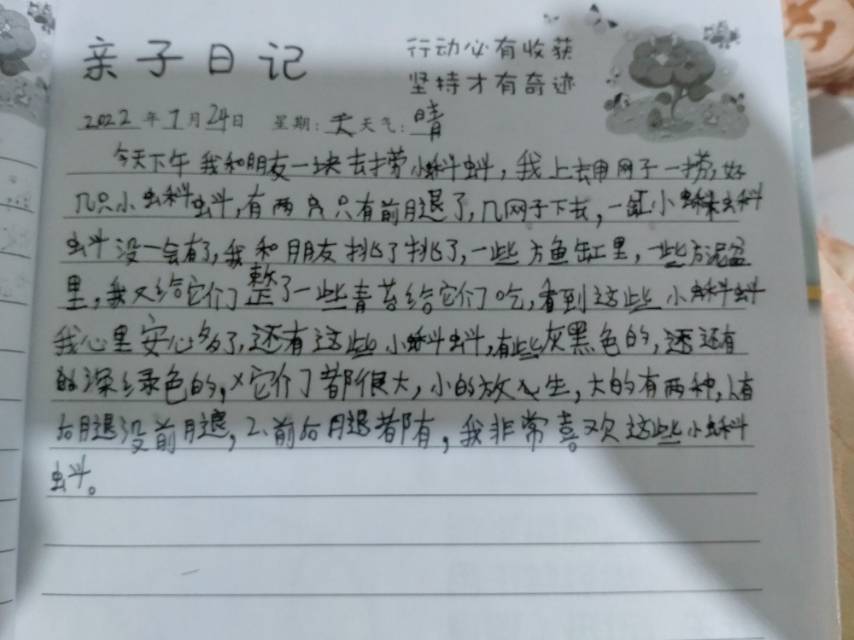 亲子日记
行动必有收获
坚持才有奇迹
2022年7月24日 星期:天 天气:晴
今天下午我和朋友一块去捞小蝌蚪,我上去用网子一捞,好
几只小蝌蚪,有两只只有前腿了,几网子下去,一缸小蝌蚪
没一会有了,我和朋友挑了挑了,一些方鱼缸里,一些方泥盆
里,我又给它们整了一些青苔给它们吃,看到这些小蝌蚪
我心里安心多了,还有这些小蝌蚪,有些灰黑色的,还有
的深绿色的,它们都很大,小的放生,大的有两种,1.有
后腿没前腿,2.前后腿都有,我非常喜欢这些小蝌
蚪。